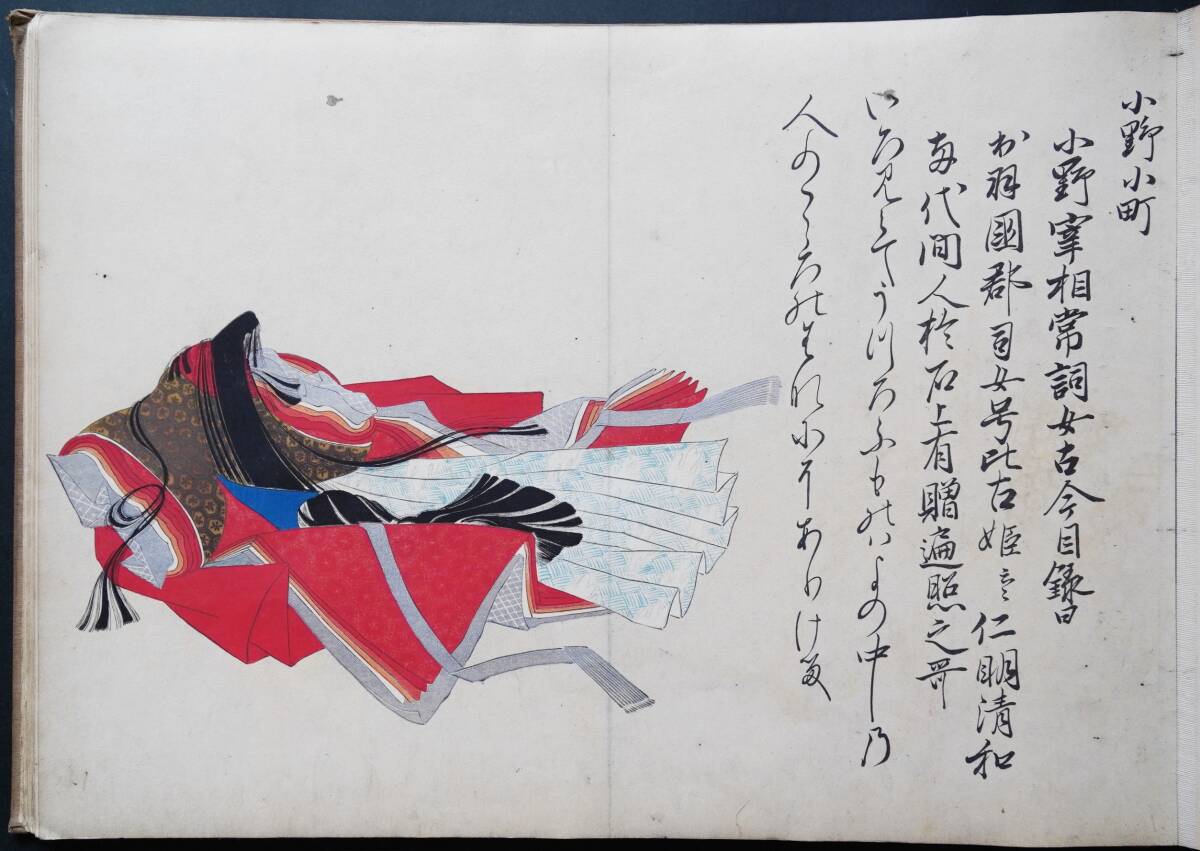 小野小町
小野宰相常詞女古今目録曰
出羽國郡司女号比古姫云々仁明清和
両代間人於石上有贈遍照之哥
いろ見えてうつろふものはよの中乃
人のこゝろのはなにそありける